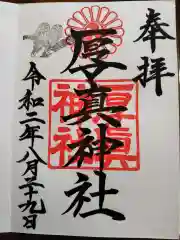 奉拝
厚真神社
厚真神社
令和二年八月二十九日